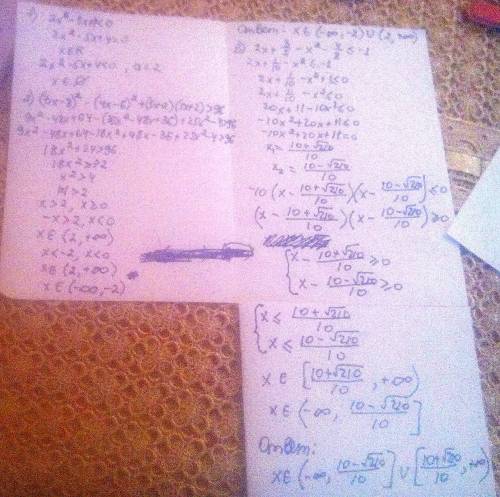 1) 2x² - 5x + 4 < 0
2x² - 5x + 4 = 0
x ∈ ∅
2x² - 5x + 4 < 0, a = 2
x ∈ ∅
2) (3x-8)² - (4x-6)² + (5x-2)(5x+2) > 96
9x² - 48x + 64 - (16x² - 48x + 36) + 25x² - 4 > 96
9x² - 48x + 64 - 16x² + 48x - 36 + 25x² - 4 > 96
18x² + 24 > 96
18x² > 72
x² > 4
|x| > 2
x > 2, x ≥ 0
-x > 2, x < 0
x ∈ (2, +∞)
x < -2, x < 0
x ∈ (2, +∞)
x ∈ (-∞, -2)
Ответ: x ∈ (-∞, -2) ∪ (2, +∞)
2x + 1/10 - x² ≤ -1
2x + 1/10 - x² + 1 ≤ 0
2x + 11/10 - x² ≤ 0
20x + 11 - 10x² ≤ 0
-10x² + 20x + 11 ≤ 0
-10x² + 20x + 11 = 0
x₁ = (10+√210)/10
x₂ = (10-√210)/10
-10 (x - (10+√210)/10) (x - (10-√210)/10) ≤ 0
(x - (10+√210)/10) (x - (10-√210)/10) ≥ 0
{ x - (10+√210)/10 ≥ 0
x - (10-√210)/10 ≥ 0
{ x ≤ (10+√210)/10
x ≤ (10-√210)/10
x ∈ [(10+√210)/10, +∞)
x ∈ (-∞, (10-√210)/10]
Ответ:
x ∈ (-∞, (10-√210)/10] ∪ [(10+√210)/10, +∞)